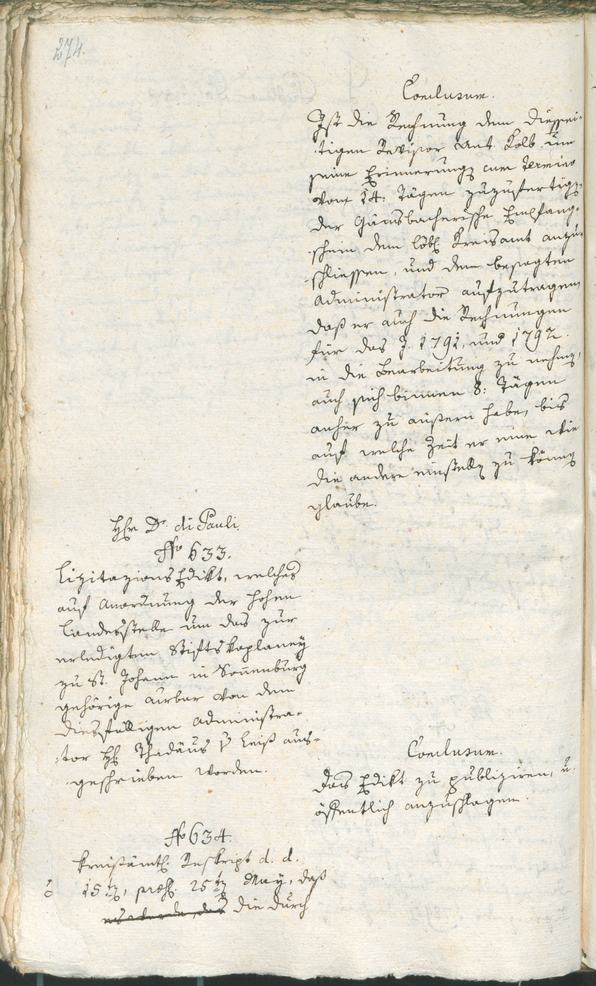 274.
Conclusum.
Ist die Rechnung dem diessei-
tigen Revisor Ant Kolb um
seine Erinnerung cum Termino
von 14. Tägen zuzufertigen
der Gänsbacherische Empfang-
schein dem löbl. Kreisamt anzu-
schliessen, und dem besagten
Administrator aufzutragen,
daß er auch die Rechnungen
für das J. 1791, und 1792
in die Bearbeitung zu nehmen,
auch sich binnen 8: Tägen
anher zu äußern habe, bis
auf welche Zeit er eine wie
die andere zu können
glaube.
Hr Dr. di Pauli
No 633.
Lizitazions Edikt, welches
auf Anordnung der hohen
Landesstelle um das zur
erledigten Stiftskaplaney
zu St. Johann in Sonnenburg
gehörige Urbar von dem
diesfälligen Administra-
tor H Thadäus v Leiß aus-
geschrieben worden.
Conclusum.
Das Edikt zu publiziren, u.
öffentlich anzuschlagen.
No 634.
Kreisämtl. Reskript d. d.
15, präs. 25 May, daß
die durch